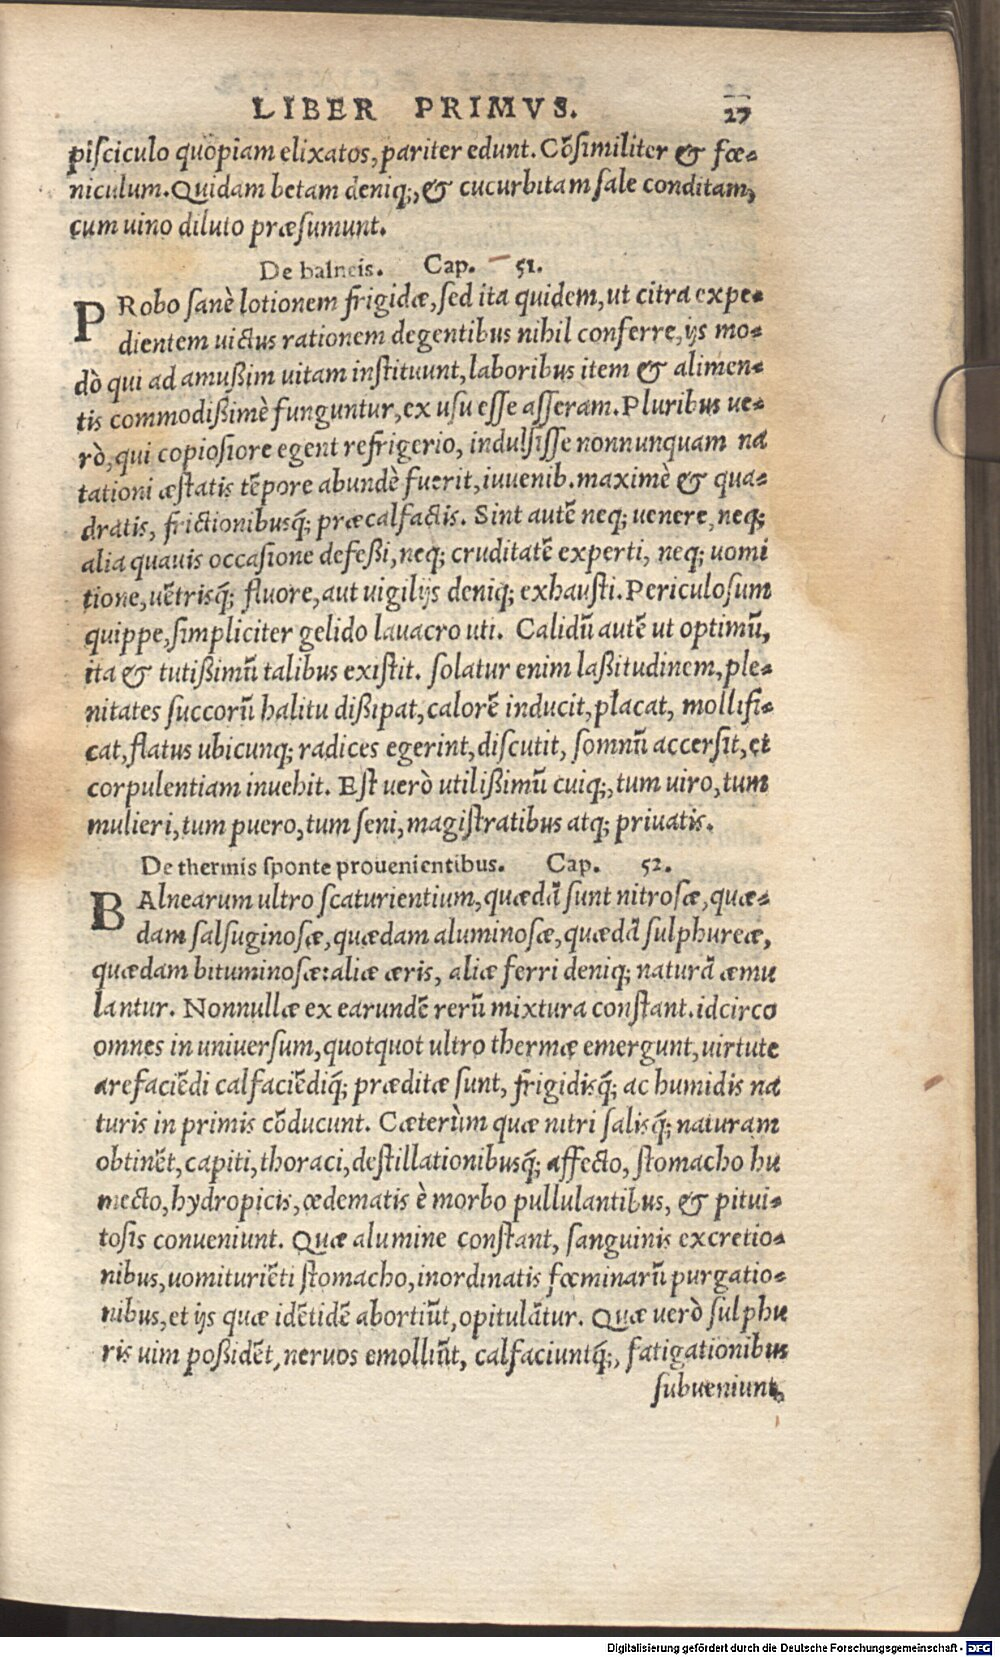 LIBER PRIMVS. 27
piſciculo quopiam elixatos, pariter edunt. Cōſimiliter & fœ-
niculum. Quidam betam deniq;, & cucurbitam ſale conditam,
cum uino diluto præſumunt.
De balneis. Cap. 51.
PRobo ſanè lotionem frigidæ, ſed ita quidem, ut citra expe-
dientem uictus rationem degentibus nihil conferre, ijs mo-
dò qui ad amußim uitam inſtituunt, laboribus item & alimen-
tis commodißimè funguntur, ex uſu eſſe aſſeram. Pluribus ue-
rò, qui copioſiore egent refrigerio, indulſiſſe nonnunquam na
tationi æſtatis tēpore abundè fuerit, iuuenib. maximè & qua-
dratis, frictionibusq́; præcalfactis. Sint autē neq; uenere, neq;
alia quauis occaſione defeßi, neq; cruditatē experti, neq; uomi
tione, uētrisq́; fluore, aut uigilijs deniq; exhauſti. Periculoſum
quippe, ſimpliciter gelido lauacro uti. Calidū autē ut optimū,
ita & tutißimū talibus exiſtit. ſolatur enim laßitudinem, ple-
nitates ſuccorū halitu dißipat, calorē inducit, placat, mollifi-
cat, flatus ubicunq; radices egerint, diſcutit, ſomnū accerſit, et
corpulentiam inuehit. Eſt uerò utilißimū cuiq;, tum uiro, tum
mulieri, tum puero, tum ſeni, magiſtratibus atq; priuatis.
De thermis ſponte prouenientibus. Cap. 52.
BAlnearum ultro ſcaturientium, quædā ſunt nitroſæ, quæ-
dam ſalſuginoſæ, quædam aluminoſæ, quædā ſulphureæ,
quædam bituminoſæ: aliæ æris, aliæ ferri deniq; naturā æmu
lantur. Nonnullæ ex earundē rerū mixtura conſtant. idcirco
omnes in uniuerſum, quotquot ultro thermæ emergunt, uirtute
arefaciēdi calfaciēdiq́; præditæ ſunt, frigidisq́; ac humidis na
turis in primis cōducunt. Cæterùm quæ nitri ſalisq́; naturam
obtinēt, capiti, thoraci, deſtillationibusq́; affecto, ſtomacho hu
mecto, hydropicis, œdematis è morbo pullulantibus, & pitui-
toſis conueniunt. Quæ alumine conſtant, ſanguinis excretio-
nibus, uomituriēti ſtomacho, inordinatis fœminarū purgatio-
nibus, et ijs quæ idētidē abortiūt, opitulātur. Quæ uerò ſulphu
ris uim poßidēt, neruos emolliūt, calfaciuntq́;, fatigationibus
ſubueniunt,
Digitalisierung gefördert durch die Deutsche Forschungsgemeinschaft - DFG